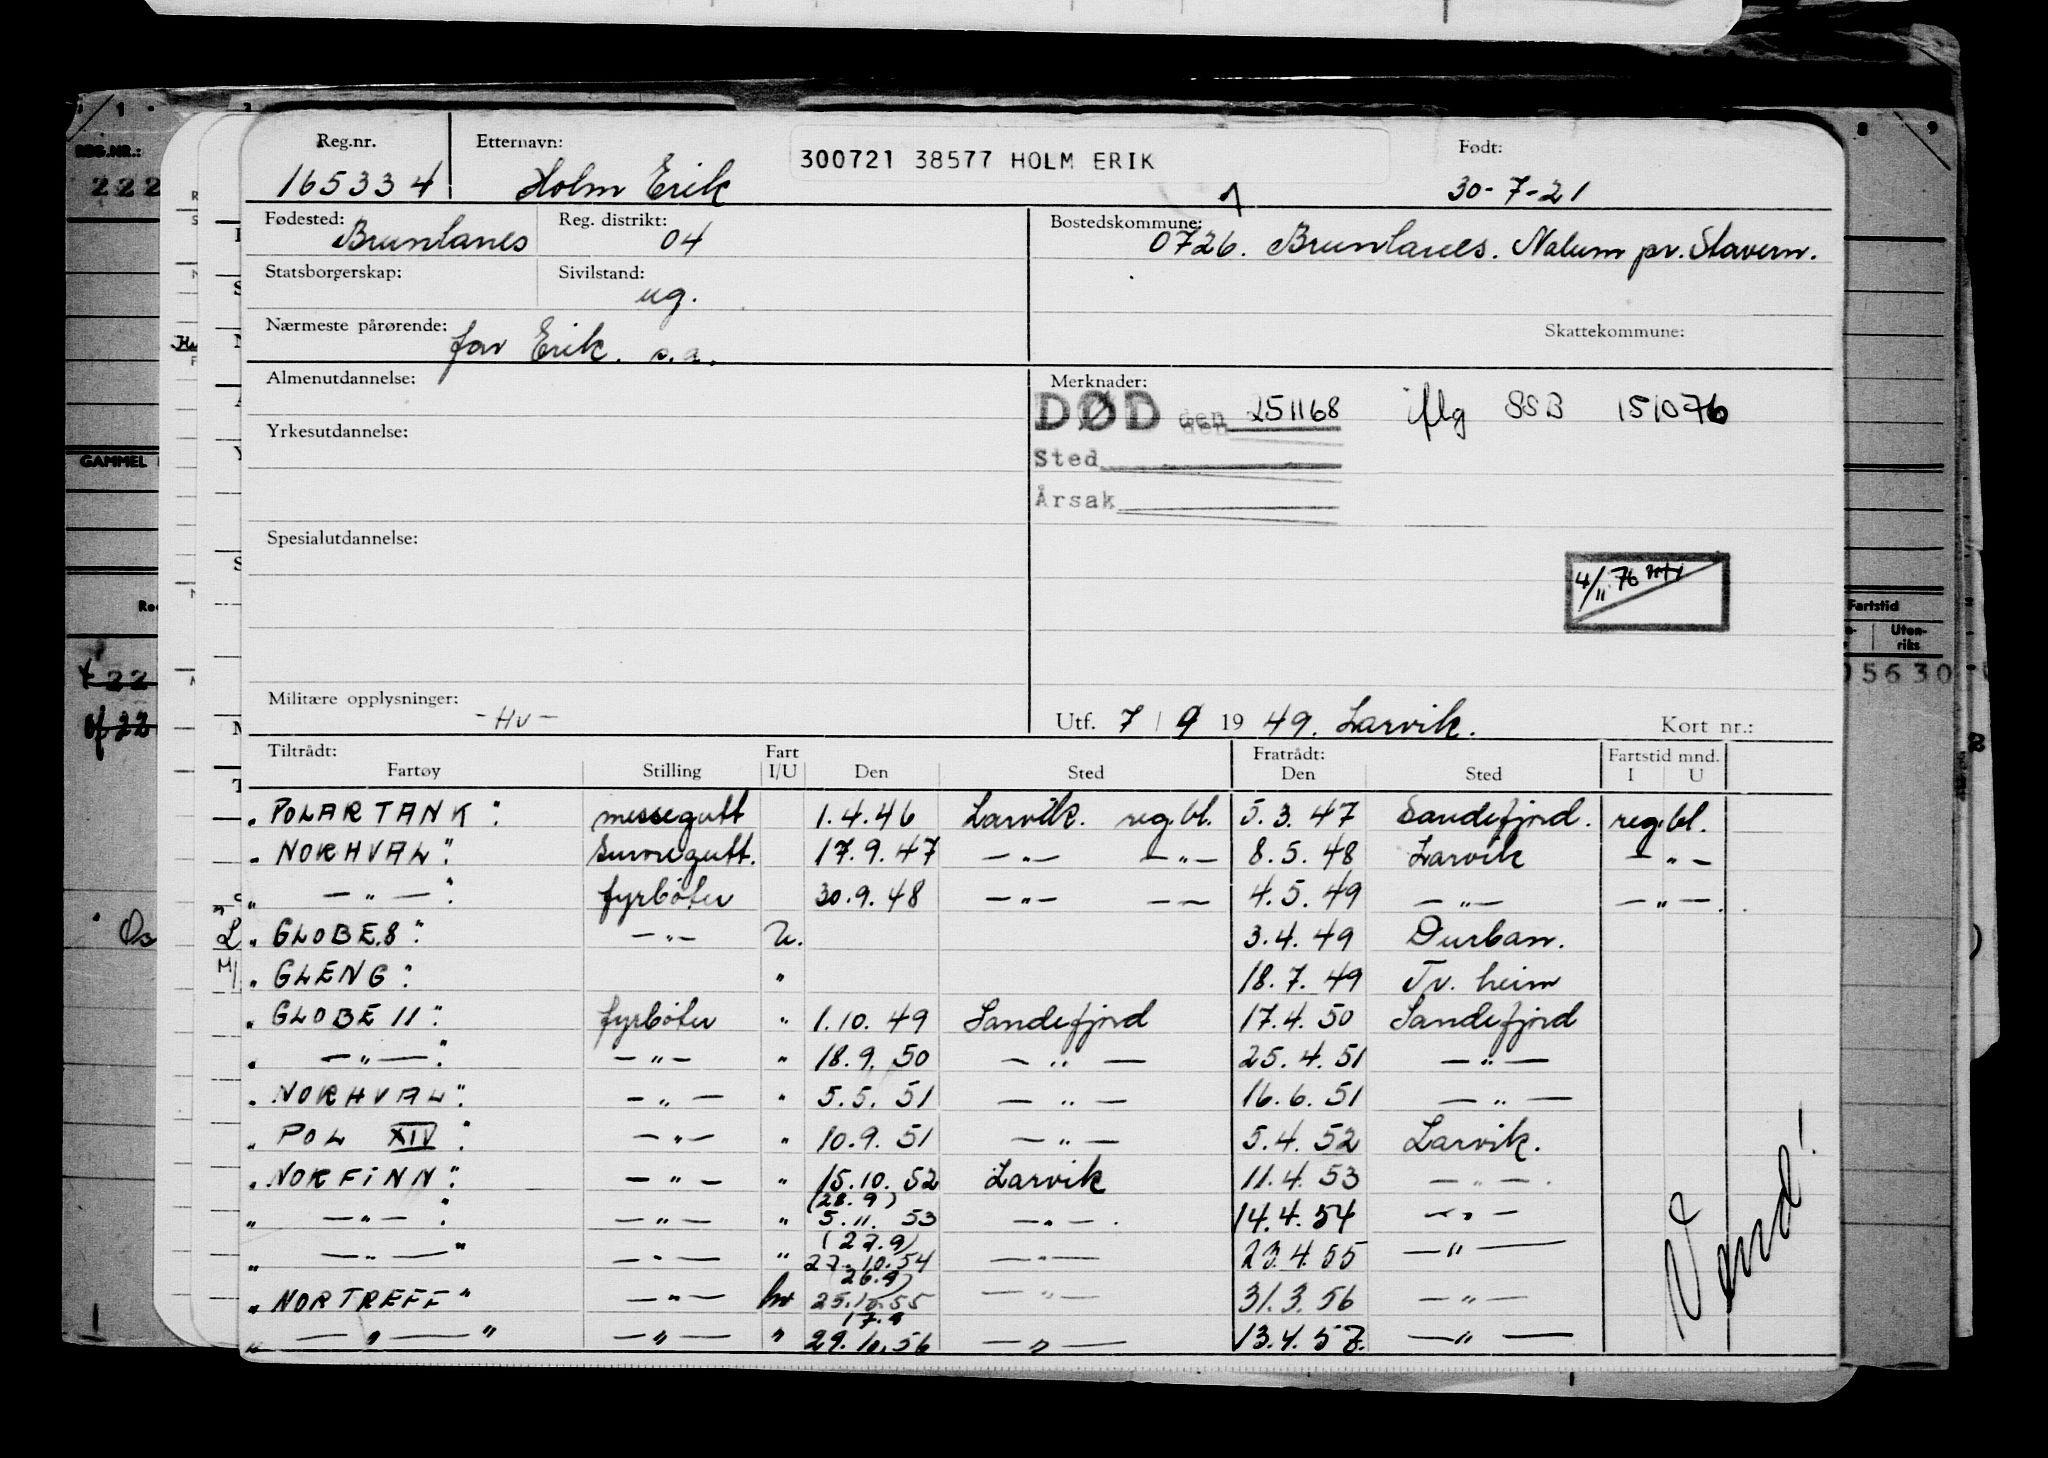 Reg.nr. Etternavn: 300721 38577 HOLM ERIK Født:
165334 Holm Erik 30-7-21
Fødested: Brunlanes Reg. distrikt: 04 Bostedskommune: 0726. Brunlanes. Nalum pr. Stavern.
Statsborgerskap: Sivilstand: ug.
Nærmeste pårørende: far Erik. s.a. Skattekommune:
Almenutdannelse: Merknader:
DØD den 251168 iflg SSB 151076
Yrkesutdannelse:
Sted
Årsak
Spesialutdannelse:
4/11 76
Militære opplysninger: -Hv- Utf. 7/9 1949. Larvik. Kort nr.:
Tiltrådt: Fart Fratrådt: Fartstid mnd.
Fartøy Stilling I/U Den Sted Den Sted I U
"POLARTANK" messegutt 1.4.46 Larvik. reg.bl. 5.3.47 Sandefjord. reg.bl.
"NORHVAL" 17.9.47 -"- -"- 8.5.48 Larvik -"-
" -"- " fyrbøter 30.9.48 -"- -- 4.5.49 -"- -"-.
"GLOBE.8" -"- U. 3.4.49 Durban.
"GLENG" " 18.7.49 Tv. heim
"GLOBE 11" fyrbøter " 1.10.49 Sandefjord 17.4.50 Sandefjord
" -"- " -"- " 18.9.50 -"- 25.4.51 -"-
"NORHVAL" -"- " 5.5.51 -"- 16.6.51 -"-
"POL XIV" -"- " 10.9.51 -"- 5.4.52 Larvik.
"NORFINN" -"- " 15.10.52 Larvik 11.4.53 -"-.
(28.9)
" -"- " -"- " 5.11.53 -"-. 14.4.54 -"-
(27.9)
" -"- " -"- " 27.10.54 -"- 23.4.55 -"-
26.9)
"NORTREFF" -"- hv 25.10.55 -"- 31.3.56 -"-
17.9
" -"- " -"- " 29.10.56 -"- 13.4.57. -"-
Vend!
1
2
8
9
REG.NR.:
222
GAMMEL
Fartstid
Uten-
riks
5630